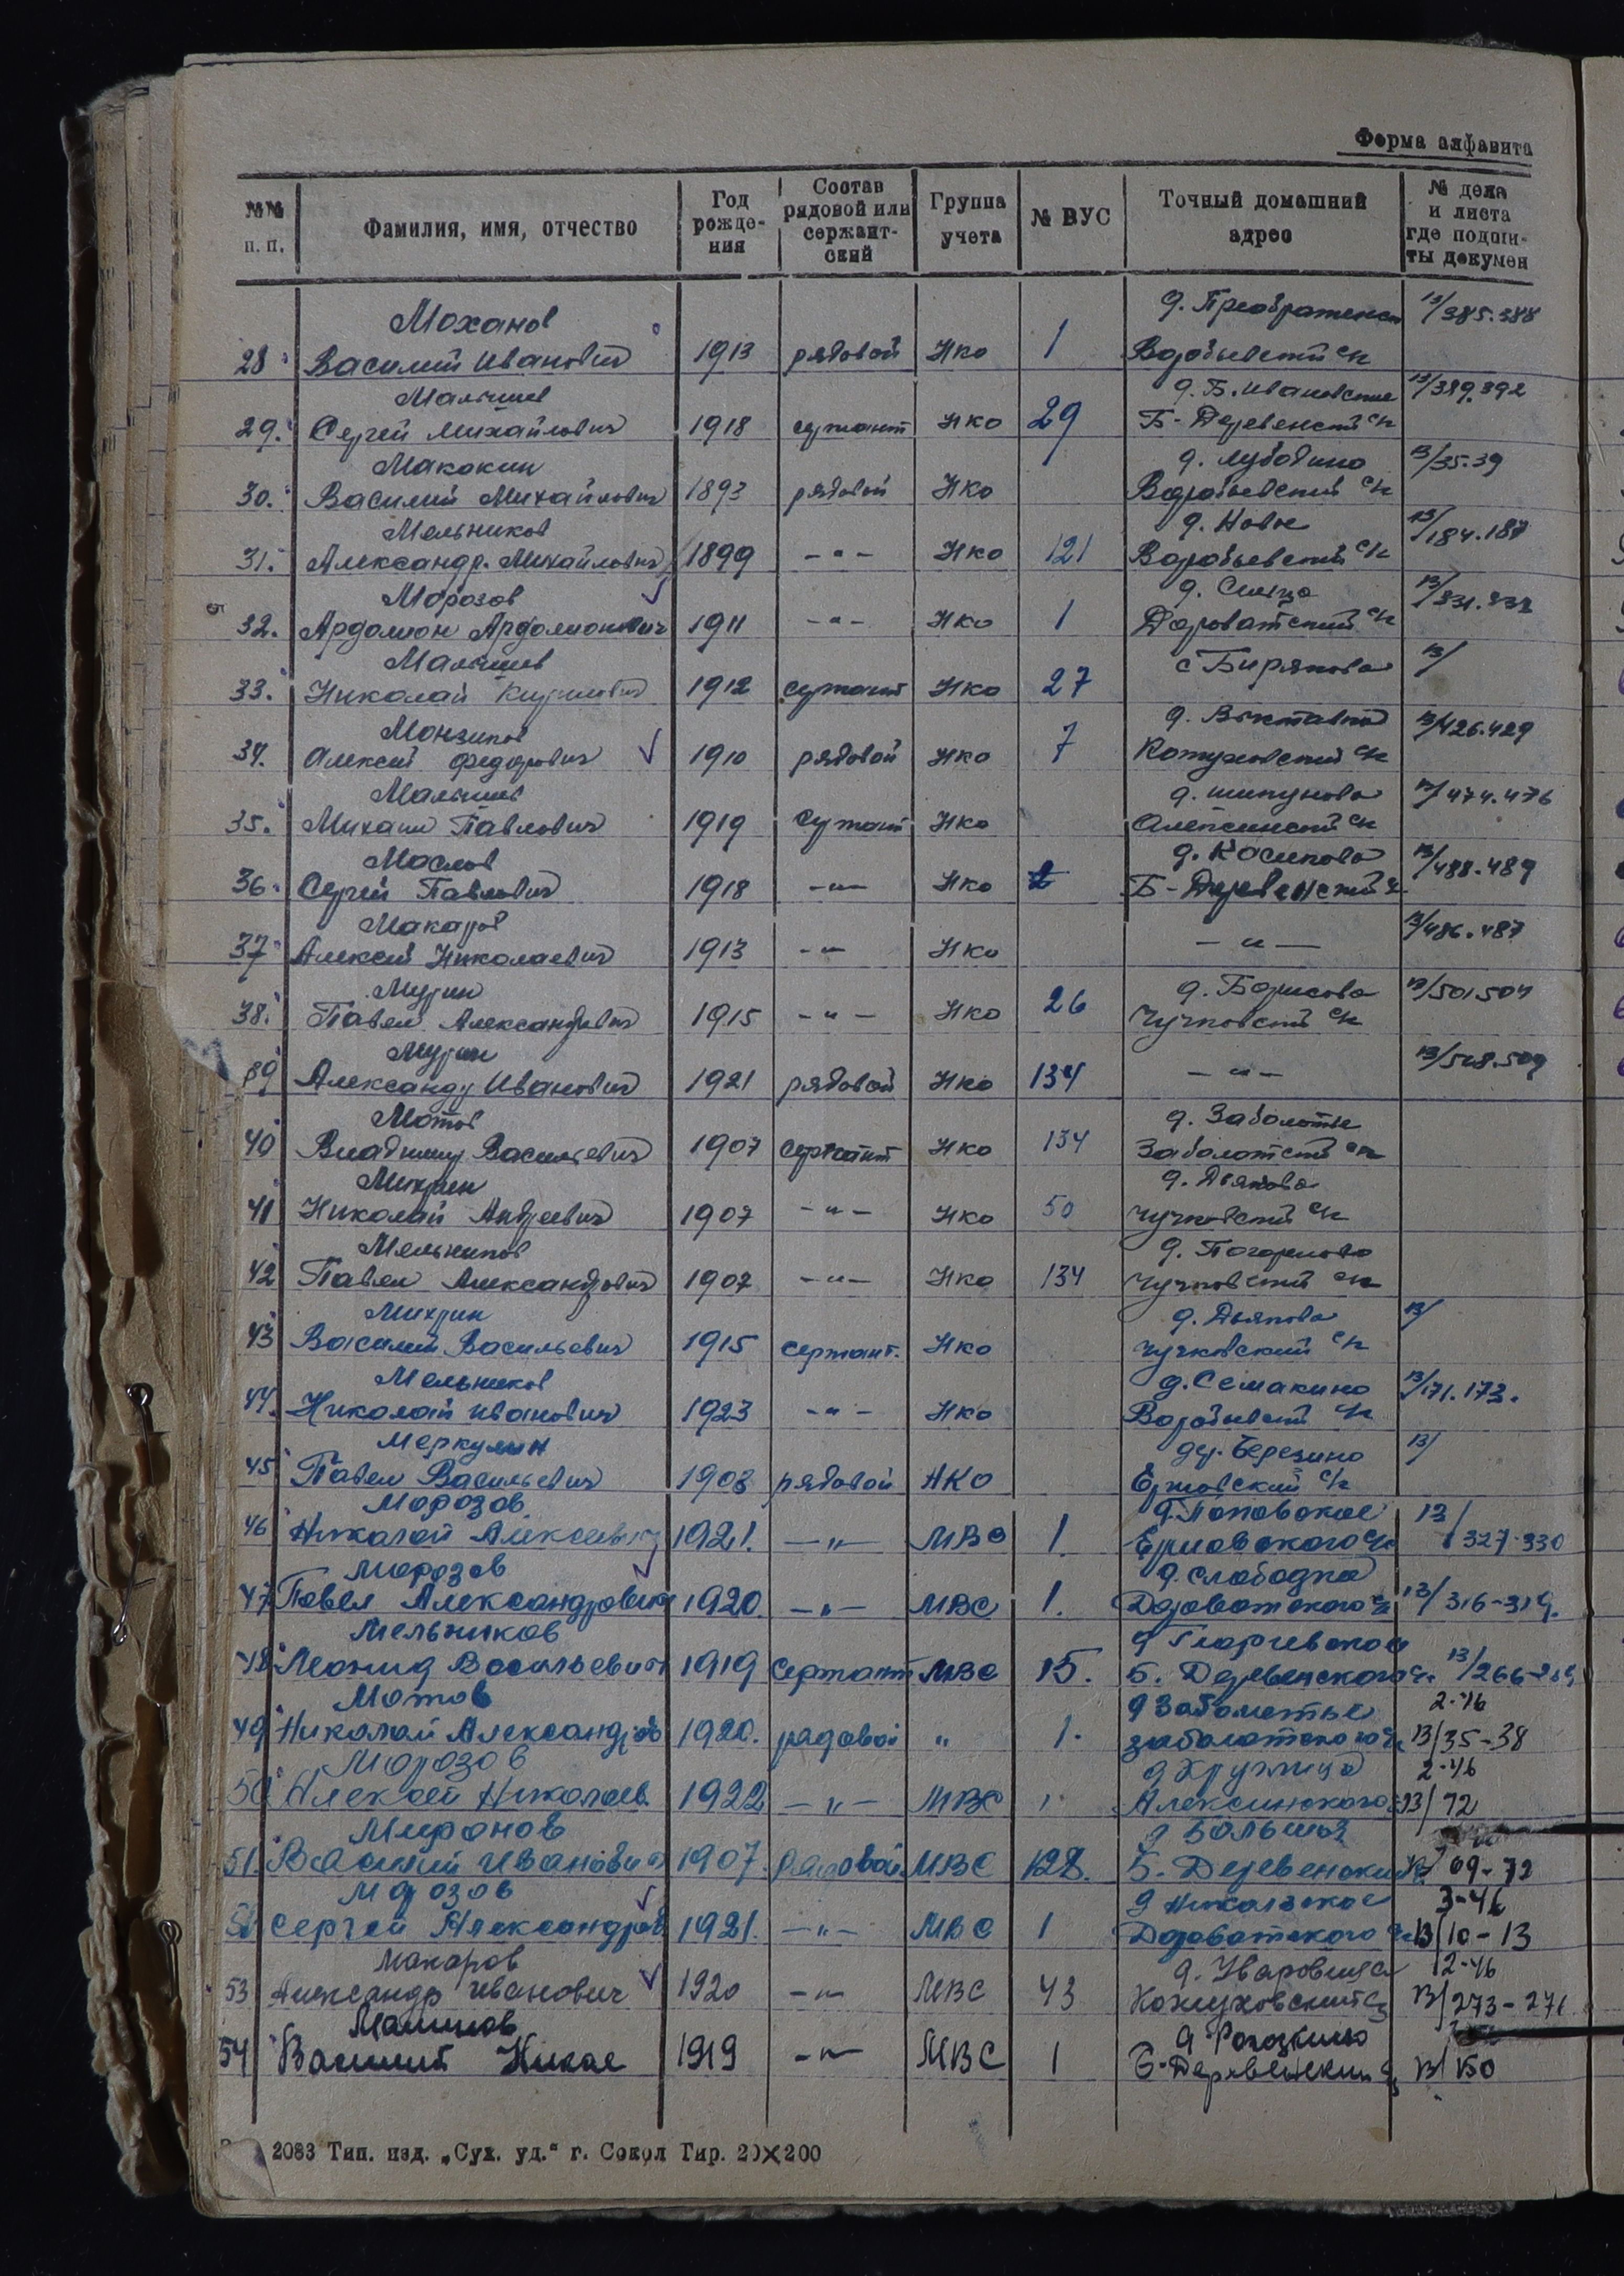 Форма алфавита
№№ п. п. Фамилия, имя, отчество Год рождения Состав рядовой или сержантский Группа учета № ВУС Точный домашний адрес № дела и листа где подшиты докумен
Моханов д. Преображенск 13/385.388
28 Василий Иванович 1913 рядовой НКО 1 Воробьевский с/с
Малышев д. Б. Ивановское 13/389.392
29. Сергей Михайлович 1918 сержант НКО 29 Б-Деревенский с/с
Макокин д. Лубодино 13/35.39
30. Василий Михайлович 1893 рядовой НКО Воробьевский с/с
Мельников д. Новое 13/184.187
31. Александр Михайлович 1899 -"- НКО 121 Воробьевский с/с
Морозов д. 13/331.
32. Ардалион Ардалионович 1911 -"- НКО 1 Дороватский с/с
Малышев с Бирякова 13/
33. Николай Кириллович 1912 сержант НКО 27
д. 13/426.429
34. Алексей Федорович 1910 рядовой НКО 7 Кожуховский с/с
Малышев д. Шипунова 13/474.476
35. Михаил Павлович 1919 сержант НКО Алексинский с/с
Маслов д. Косиково 13/488.489
36. Сергей Павлович 1918 -"- НКО Б-Деревенский с/с
Макаров 13/486.487
37 Алексей Николаевич 1913 -"- НКО -"-
Мурин д. Борисово 13/501504
38. Павел Александрович 1915 -"- НКО 26 Чучковский с/с
Мурин 13/508.509
39 Александр Иванович 1921 рядовой НКО 134 -"-
Мотов д. Заболотье
40 Владимир Васильевич 1907 сержант НКО 134 Заболотский с/с
Михрин д. Дьяково
41 Николай Андреевич 1907 -"- НКО 50 Чучковский с/с
Мельников д. Погорелово
42 Павел Александрович 1907 -"- НКО 134 Чучковский с/с
Михрин д. Дьяково 13/
43 Василий Васильевич 1915 сержант. НКО Чучковский с/с
Мельников д. Семакино 13/171.173.
44. Николай Иванович 1923 -"- НКО Воробьевский с/с
Меркулин дер. Березино 13/
45 Павел Васильевич 1903 рядовой НКО Ершовский с/с
Морозов д. Поповское 13/
46 Николай Алексеевич 1921. -"- МВС 1. Ершовского с/с 327-330
Морозов д. Слободка
47 Павел Александрович 1920. -"- МВС 1. Дороватского с/с 13/316-319.
Мельников д Георгиевское
48 Леонид Васильевич 1919 сержант МВС 15. Б. Деревенского с/с 13/266-269
Мотов д Заболотье 2-46
49 Николай Александров 1920. рядовой " 1. Заболотского с/с 13/35-38
Морозов д Круглица 2-46
50 Алексей Николаев. 1922 -"- МВС Алексинского 13/72
Миронов д
51. Василий Иванович 1907. рядовой МВС 128. Б. Деревенский 69-72
Морозов д Никольское 3-46
52 Сергей Александров 1921. -"- МВС 1 Дороватского с/с 13/10-13
Макаров д. Уваровица 12-46
53 Александр Иванович 1920 -"- МВС 43 Кожуховский с/с 13/273-276
Малинов д Рогозкино
54 Василий Никол 1919 -"- МВС 1 Б-Деревенский с/с 13/150
2083 Тип. изд. „Сух. уд.“ г. Сокол Тир. 20×200